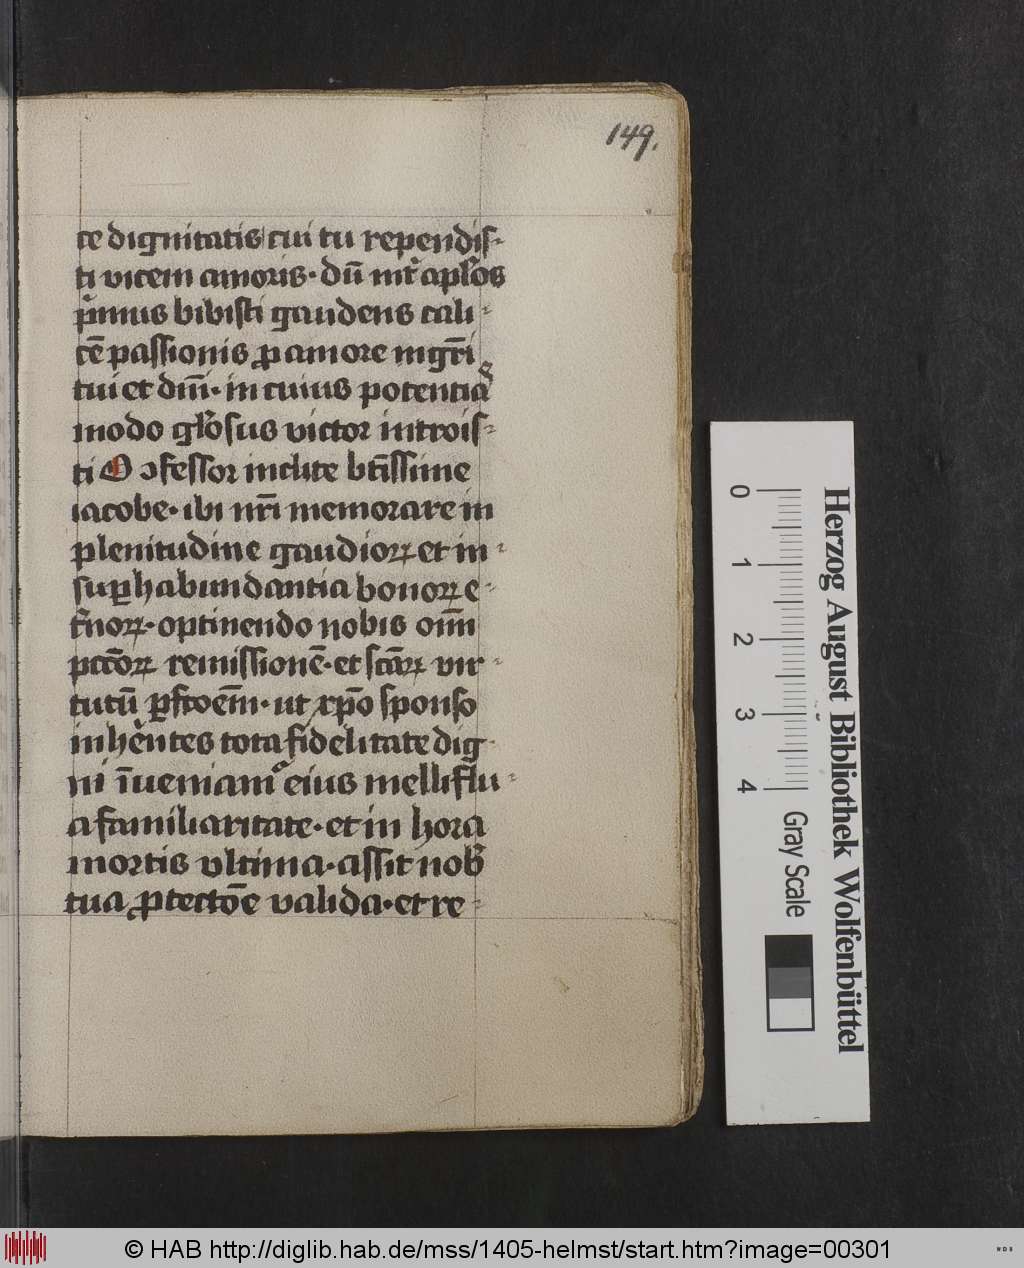 149.
te dignitatis cui tu rependis-
ti vicem amoris · dū int̾ apl̾os
p̾mus bibisti gaudens cali-
cē passionis ꝓ amore mgr̄i
tui et dn̄i · in cuius potentia
modo gl̾osus victor introis-
ti O ↄfessor inclite bt̄issime
iacobe · ibi nr̄i memorare in
plenitudine gaudioꝝ et in-
suꝑ habundantia bonoꝝ e-
t̾noꝝ · optinendo nobis oīm
pctōꝝ remissionē · et sctāꝝ vir-
tutū ꝑfctōem · ut xp̄o sponso
inhe̾ntes tota fidelitate dig
ni īueniamꝰ eius melliflu-
a familiaritate · et in hora
mortis vltima · assit nob̾
tua ꝓtectōe valida · et re-
0
1
2
3
4
Gray Scale
Herzog August Bibliothek Wolfenbüttel
© HAB http://diglib.hab.de/mss/1405-helmst/start.htm?image=00301